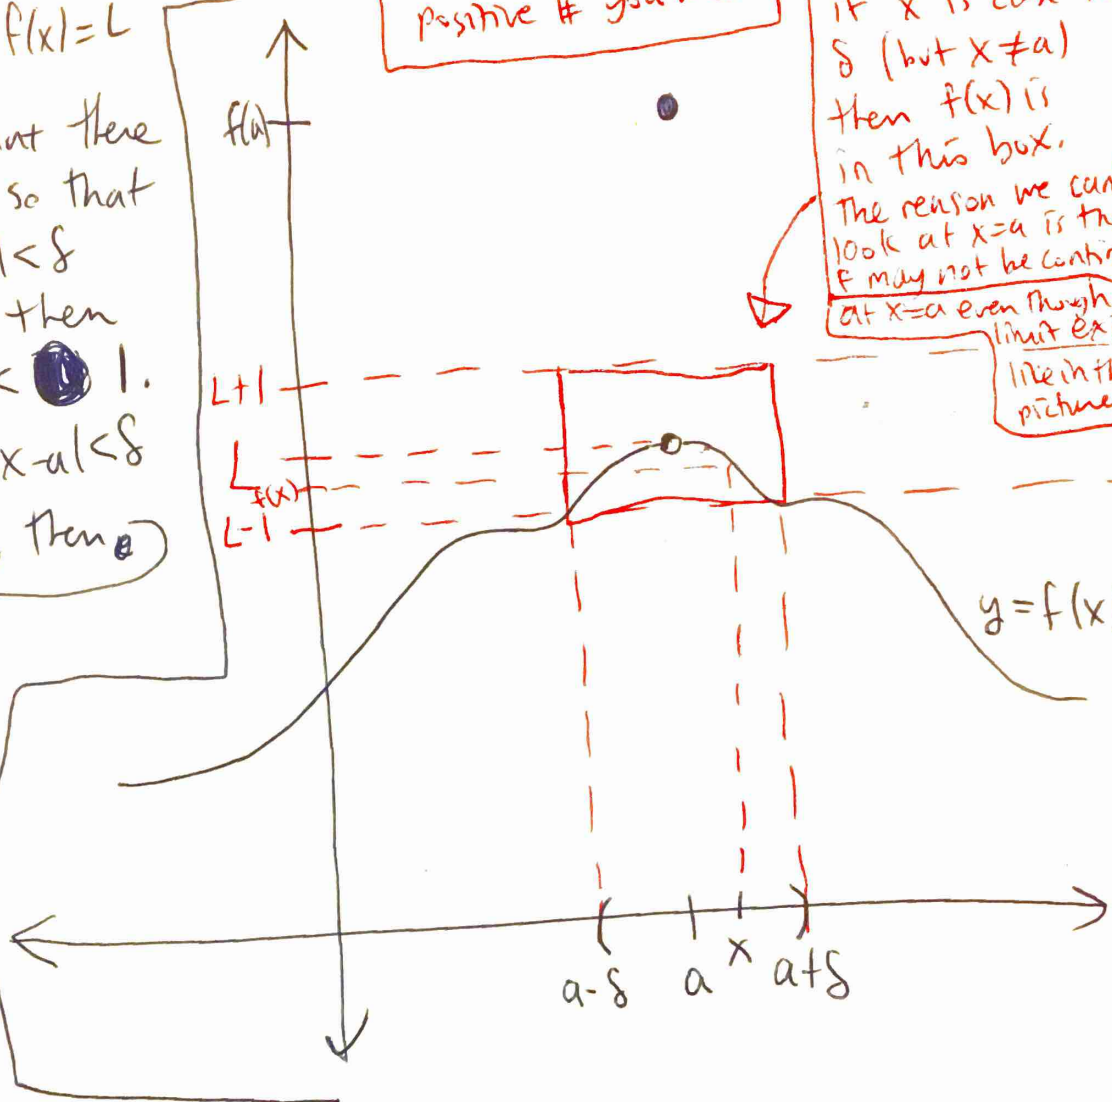 f(x)=L
there
so that
|<δ
then
< 1.
x-a|<δ
then
positive #
f(a)
if x is
δ (but x≠a)
then f(x) is
in this box.
The reason we can
look at x=a is
f may not be
at x=a even though
limit
like in
picture
L+1
L
f(x)
L-1
y=f(x
a-δ a x a+δ